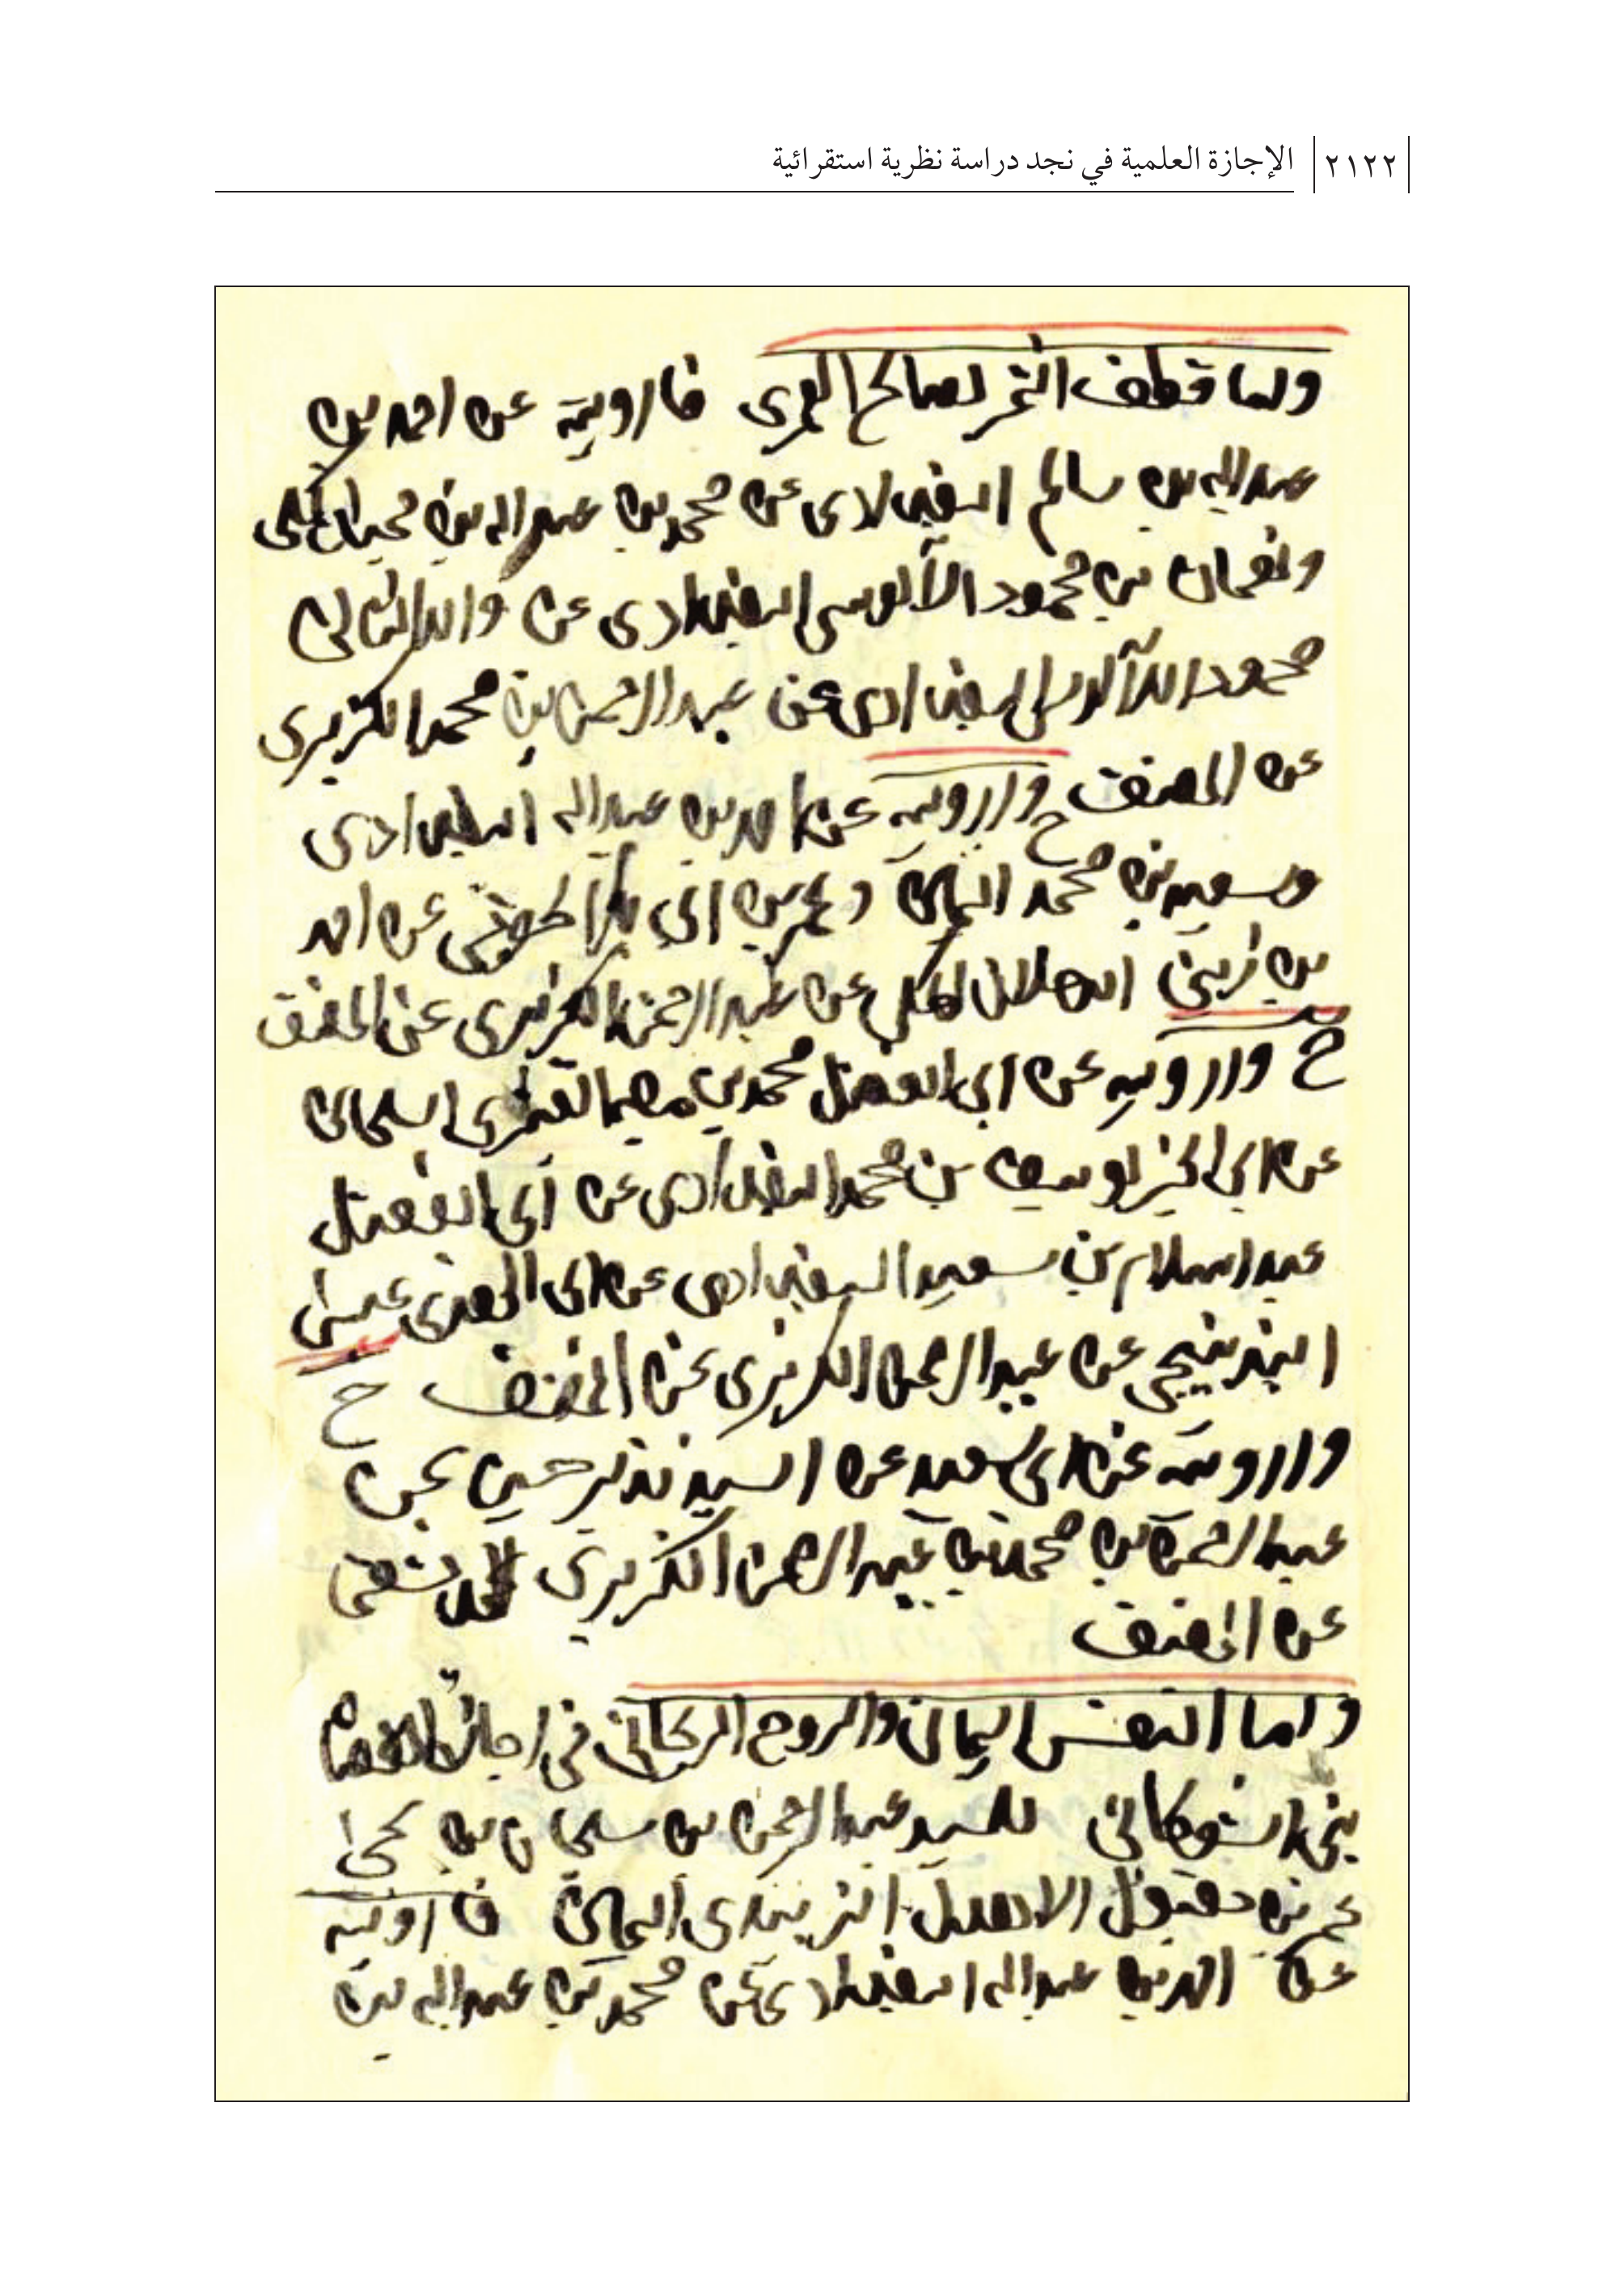 ٢١٢٢ الإجازة العلمية في نجد دراسة نظرية استقرائية
واما قطف الثمر لصالح العمرى فارويه عن احمد بن
عبدالله بن سالم البغدادى عن محمد بن عبدالله بن
ونعمان بن محمود الآلوسى البغدادى عن والد الثانى
محمود الآلوسى البغدادى عن عبدالرحمن بن محمد الكزبرى
عن المصنف ح وارويه عن احمد بن عبدالله البغدادى
وسعيد بن محمد اليمانى وعمر بن ابى بكر عن احمد
بن زينى المكى عن عبدالرحمن الكزبرى عن المصنف
ح وارويه عن ابى الفضل محمد بن
عن ابى الخير يوسف بن محمد البغدادى عن ابى الفضل
عبد السلام بن سعيد البغدادى عن ابى الهدى عيسى
البندنيجى عن عبد الرحمن الكزبرى عن المصنف ح
وارويه عن ابى سعيد عن السيد نذير حسين عن
عبد الرحمن بن محمد بن عبد الرحمن الكزبرى الدمشقى
عن المصنف
واما النفس اليمانى والروح الريحانى فى اجازة القضاة
بنى الشوكانى للسيد عبد الرحمن بن سليمان بن يحى
عمر بن مقبول الاهدل الزبيدى اليمانى فارويه
عن احمد بن عبدالله البغدادى عن محمد بن عبدالله بن